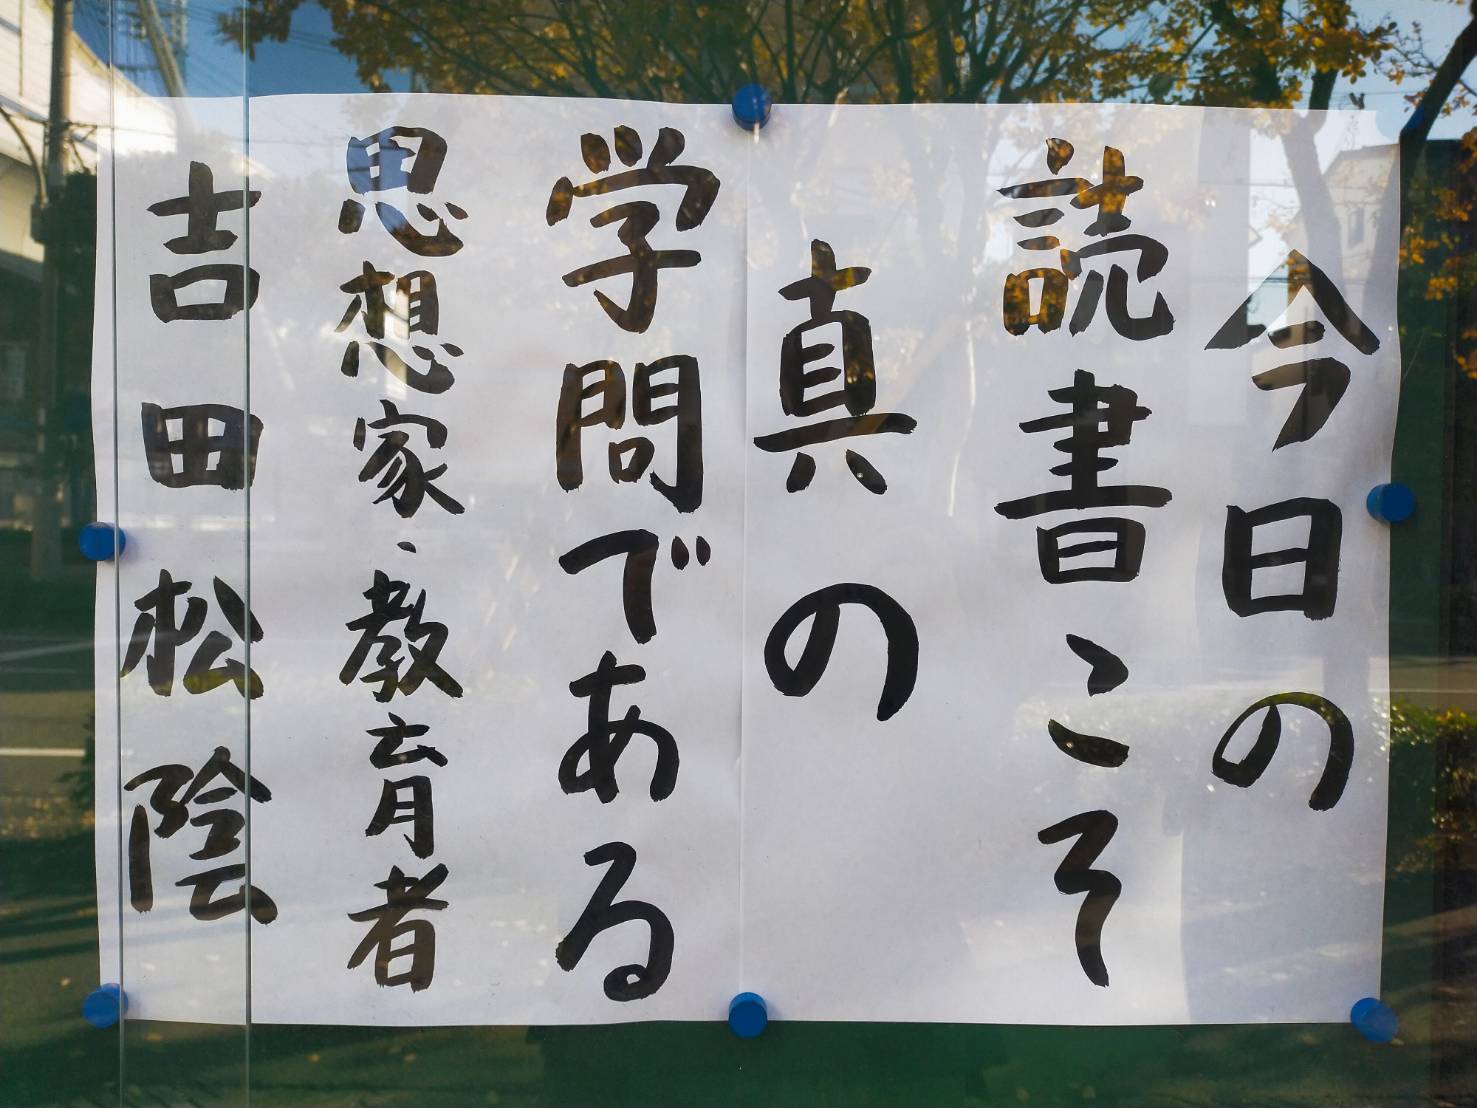 今日の
読書こそ
真の
学問である
思想家、教育者
吉田松陰